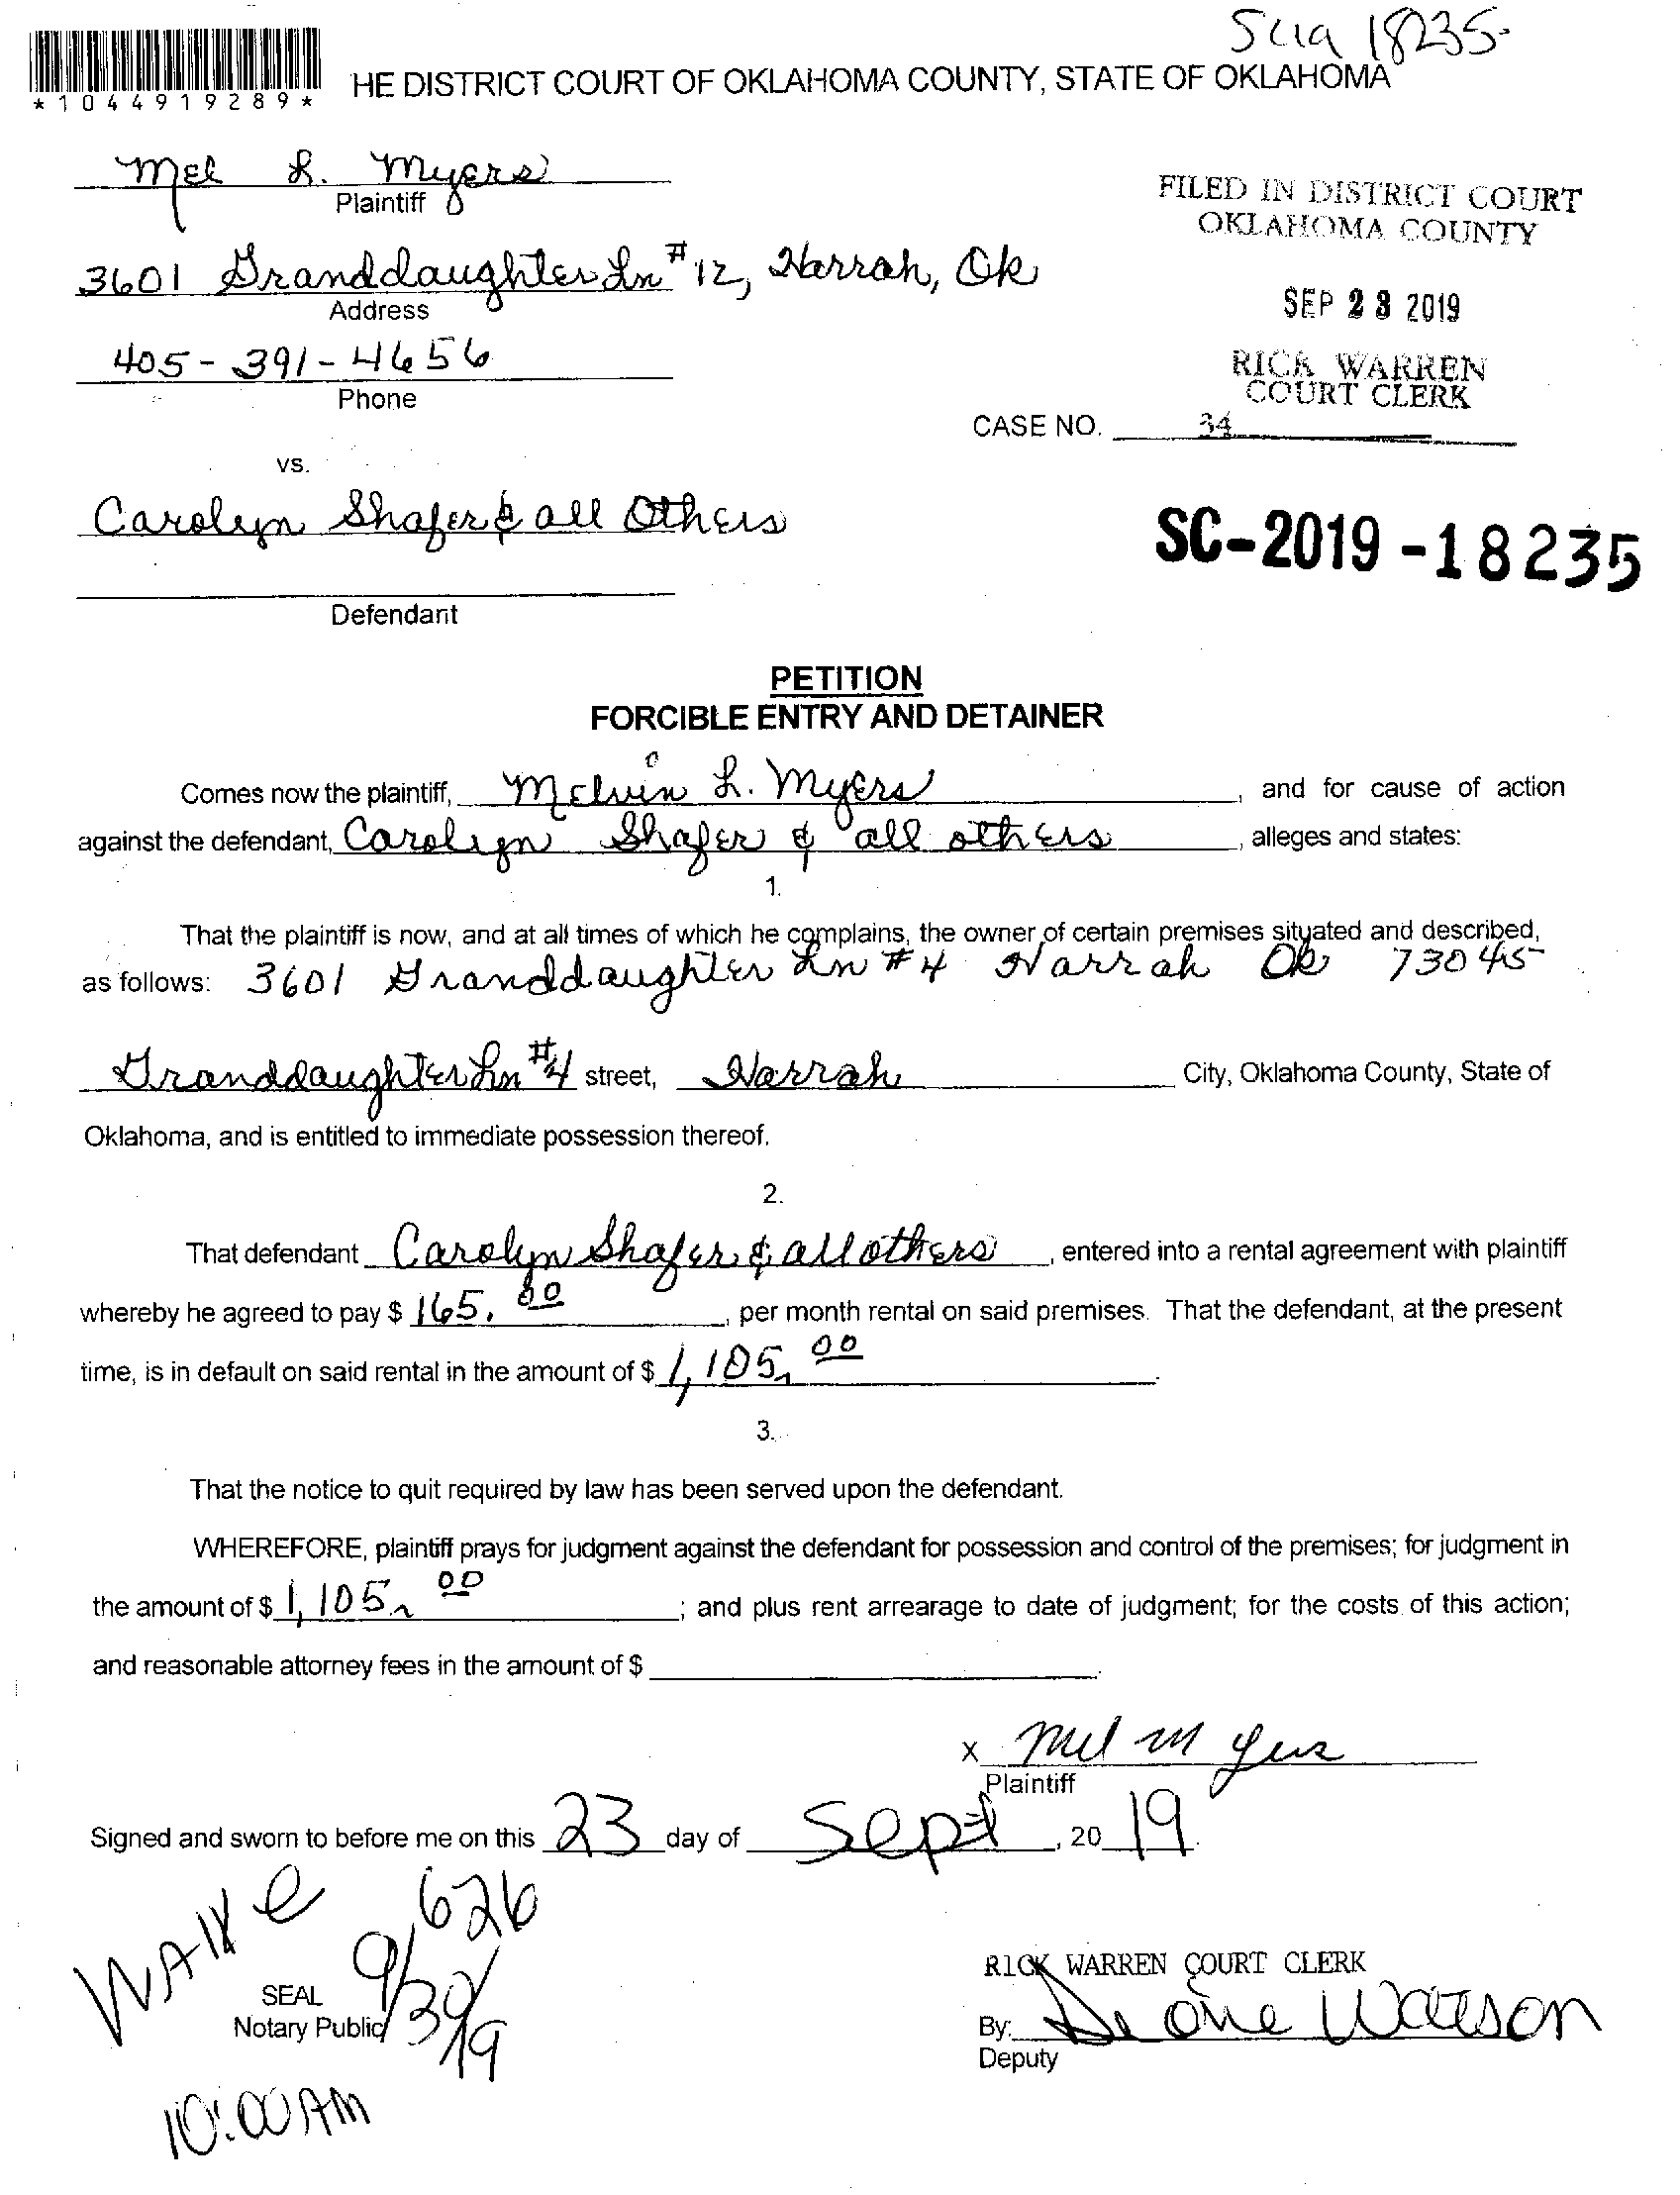 18235
*1044919289*
HE DISTRICT COURT OF OKLAHOMA COUNTY, STATE OF OKLAHOMA
Mel L. Myers
Plaintiff
FILED IN DISTRICT COURT
OKLAHOMA COUNTY
3601 Granddaughter Ln #12, Harrah, Ok
Address
SEP 23 2019
405-391-4656
Phone
RICK WARREN
COURT CLERK
CASE NO. 34
vs.
Carolyn Shafer & all Others
SC-2019-18235
Defendant
PETITION
FORCIBLE ENTRY AND DETAINER
Comes now the plaintiff, Melvin L. Myers, and for cause of action
against the defendant, Carolyn Shafer & all others, alleges and states:
1.
That the plaintiff is now, and at all times of which he complains, the owner of certain premises situated and described,
as follows: 3601 Granddaughter Ln #4 Harrah Ok 73045
Granddaughter Ln #4 street, Harrah City, Oklahoma County, State of
Oklahoma, and is entitled to immediate possession thereof.
2.
That defendant Carolyn Shafer & all others, entered into a rental agreement with plaintiff
whereby he agreed to pay $ 165.00, per month rental on said premises. That the defendant, at the present
time, is in default on said rental in the amount of $ 1,105.00.
3.
That the notice to quit required by law has been served upon the defendant.
WHEREFORE, plaintiff prays for judgment against the defendant for possession and control of the premises; for judgment in
the amount of $ 1,105.00; and plus rent arrearage to date of judgment; for the costs of this action;
and reasonable attorney fees in the amount of $
x Mel Myers
Plaintiff
Signed and sworn to before me on this 23 day of Sept, 2019.
626
9/30/19
SEAL
Notary Public
10:00 AM
RICK WARREN COURT CLERK
By: Watson
Deputy